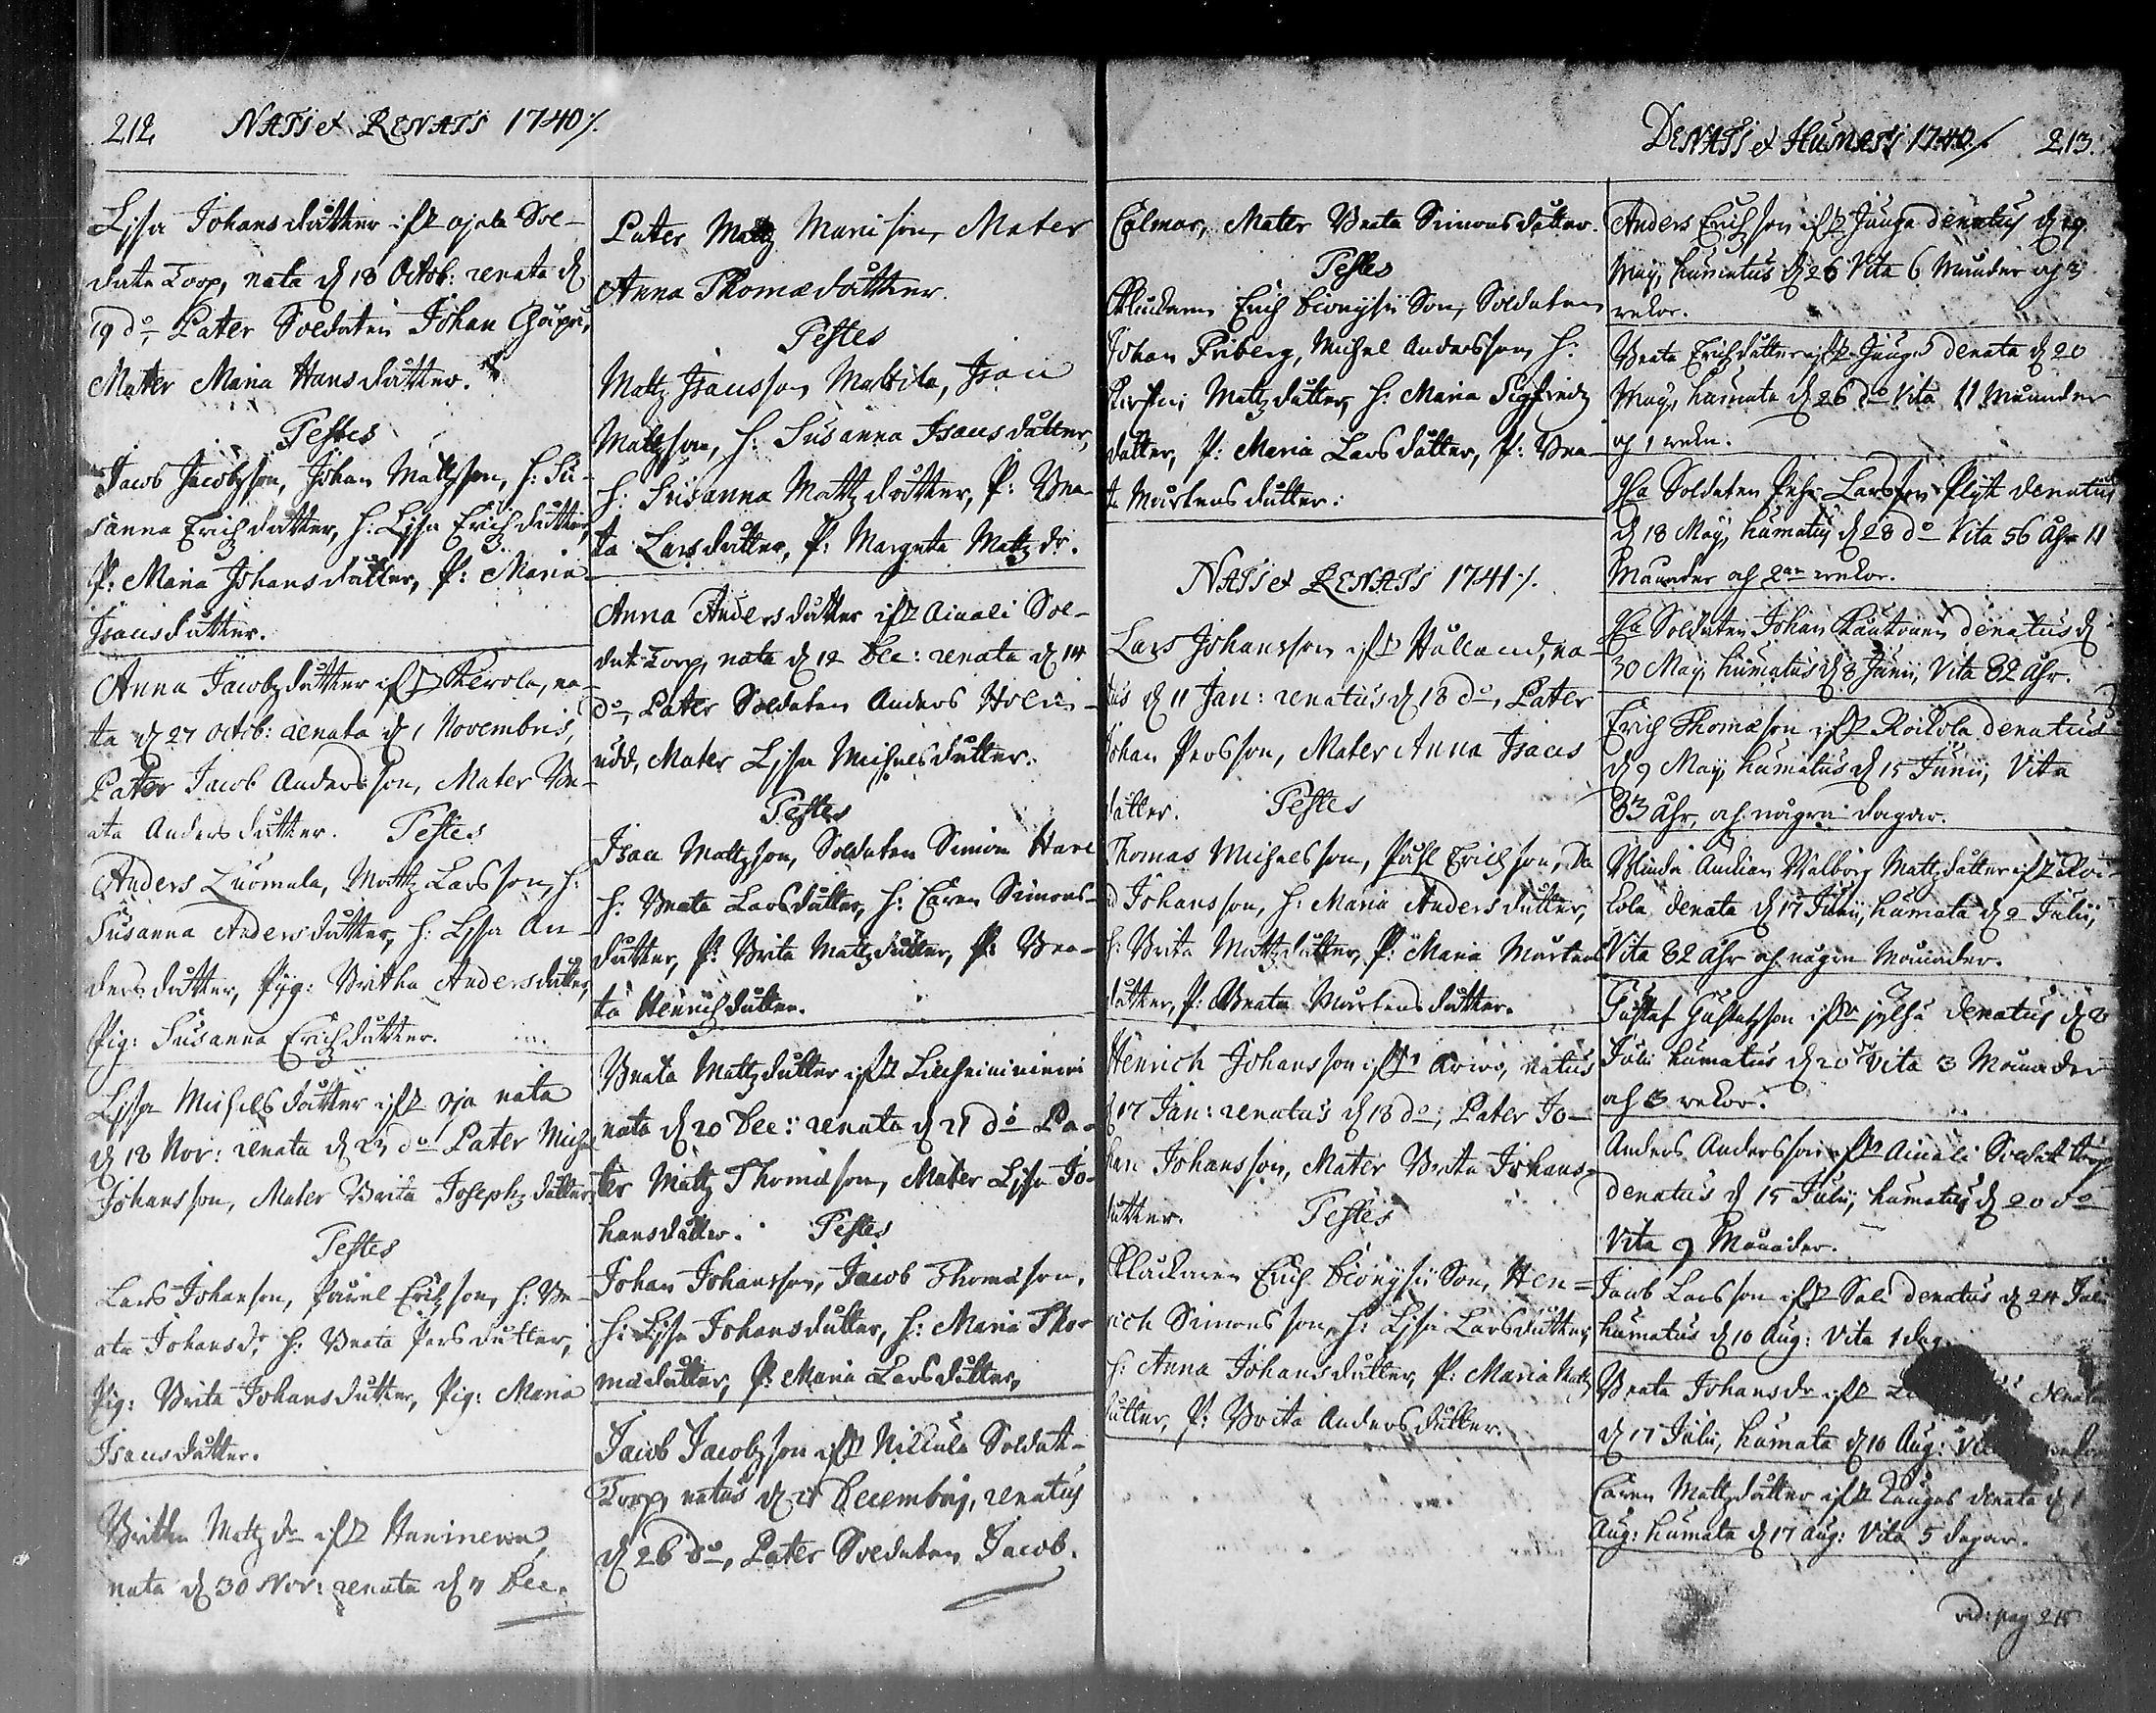 212 NATI et RENATI 1740 /.
Lisa Johansdåtter ifr: ojala Sol-
date Torp, nata d 18 Octob: renata d
19 do Pater Soldaten Johan
Mater Maria Hansdåtter.
Testes
Jacob Jacobsson, Johan Mattsson, h: Su-
sanna Erichdåtter, h: Lisa Erichdåtter,
P: Maria Johansdåtter, P: Maria
Isacsdåtter.
Anna Jacobsdåtter ifr Kerola, na-
ta d 27 Octob: renata d 1 Novembris,
Pater Jacob Andersson, Mater Be-
ata Andersdåtter. Testes
Anders Luomala, Mattz Larsson, h:
Susanna Andersdåtter, h: Lisa An-
dersdåtter, Pyg: Britha Andersdåtter,
Pig: Susanna Erichdåtter.
Lisa Michelsdåtter ifr Oja nata
d 18 Nor: renata d 23 do Pater Mich
Johansson, Mater Brita Josephzdåtter
Testes
Lars Johanson, Påvel Erichson, h: Be-
ata Johansdr h: Beata Persdåtter,
Pig: Brita Johansdåtter, Pig: Maria
Isacsdåtter.
Britha Mattzdr ifr Haninen,
nata d 30 Nov: renata d 7 Dec.
Pater Mattz Mari son, Mater
Anna Thomædåtter.
Testes
Mattz Isacsson Mattila, Isac
Mattzson, h: Susanna Isacsdåtter,
h: Susanna Mattzdåtter, P: Bea-
ta Larsdåtter, P: Margeta Mattzdr.
Anna Andersdåtter ifr Ainali Sol-
dat Torp, nata d 12 Dec: renata d 14
do, Pater Soldaten Anders Holm-
udd, Mater Lisa Michelsdåtter.
Testes
Isac Mattzson, Soldaten Simon Hare
h: Beata Larsdåtter, h: Caren Simons-
dåtter, P: Brita Mattzdåtter, P: Bea-
ta Henrichdåtter.
Beata Mattzdåtter ifr
nata d 20 Dec: renata d 21 do Pa-
ter Mattz Thomæson, Mater Lisa Jo-
hansdåtter. Testes
Johan Johansson, Jacob Thomæson,
h: Lisa Johansdåtter, h: Maria Tho-
mædåtter, P: Maria Larsdåtter,
Jacob Jacobsson ifr Niklula Soldat-
Torp, natus d 21 Decembris, renatus
d 26 do, Pater Soldaten Jacob.
Colmar, Mater Beata Simonsdåtter.
Testes
Klockaren Erich Dionysii Son, Soldaten
Johan Friberg, Michel Andersson, h:
Kirstin Mattzdåtter, h: Maria Sigfredz
dåtter, P: Maria Larsdåtter, P: Bea-
ta Mårtensdåtter:
NATI et RENATI 1741 /.
Lars Johansson ifr Hålland, na-
tus d 11 Jan: renatus d 18 do, Pater
Johan Persson, Mater Anna Isacs
dåtter. Testes
Thomas Michelsson, Påhl Erichson, Da
d Johansson, h: Maria Andersdåtter,
h: Brita Mattzdåtter, P: Maria Mårtens
dåtter, P: Beata Mårtensdåtter.
Henrich Johansson ifr Krivo, natus
d 17 Jan: renatus d 18 do, Pater Jo-
han Johansson, Mater Brita Johans-
dåtter. Testes
Klockaren Erich Dionysii Son, Hen-
rich Simonsson, h: Lisa Larsdåtter,
h: Anna Johansdåtter, P: Maria Mattz
dåtter, P: Brita Andersdåtter.
DENATI et HUMATI 1740 /. 213.
Anders Erichsson ifr Junga denatus d 19
May, humatus d 26 Vita 6 Månader och 3
vekor.
Beata Erichdåtter ifr Junga denata d 20
May, humata d 26 do Vita 11 Månader
och 1 veku.
Soldaten Pehr Larsson Flyt denatus
d 18 May, humatus d 28 do Vita 56 Åhr 11
Månader och 2 vekor.
Soldaten Johan Kautonen denatus d
30 May, humatus d 8 Junii, Vita 32 Åhr.
Erich Thomæson ifr Koikola denatus
d 9 May, humatus d 15 Junii, Vita
33 Åhr, och några dagar.
Blinda Walborg Mattzdåtter ifr Koi-
kola denata d 17 Junii, humata d 2 Julii,
Vita 32 Åhr och några Månader.
Gustaf Gustafsson ifr jylhä denatus d 2
Julii humatus d 20 Vita 3 Månader
och 3 vekor.
Anders Andersson ifr Ainali Soldat torp
denatus d 15 Julii, humatus d 20 do
Vita 9 Månader.
Jacob Larsson ifr Sali denatus d 24 Julii
humatus d 10 Aug: Vita 1 dag.
Beata Johansdr ifr denata
d 17 Julii, humata d 10 Aug:
Caren Mattzdåtter ifr Kangas denata d 1
Aug: humata d 17 Aug: Vita 5 dagar.
vid: pag 215